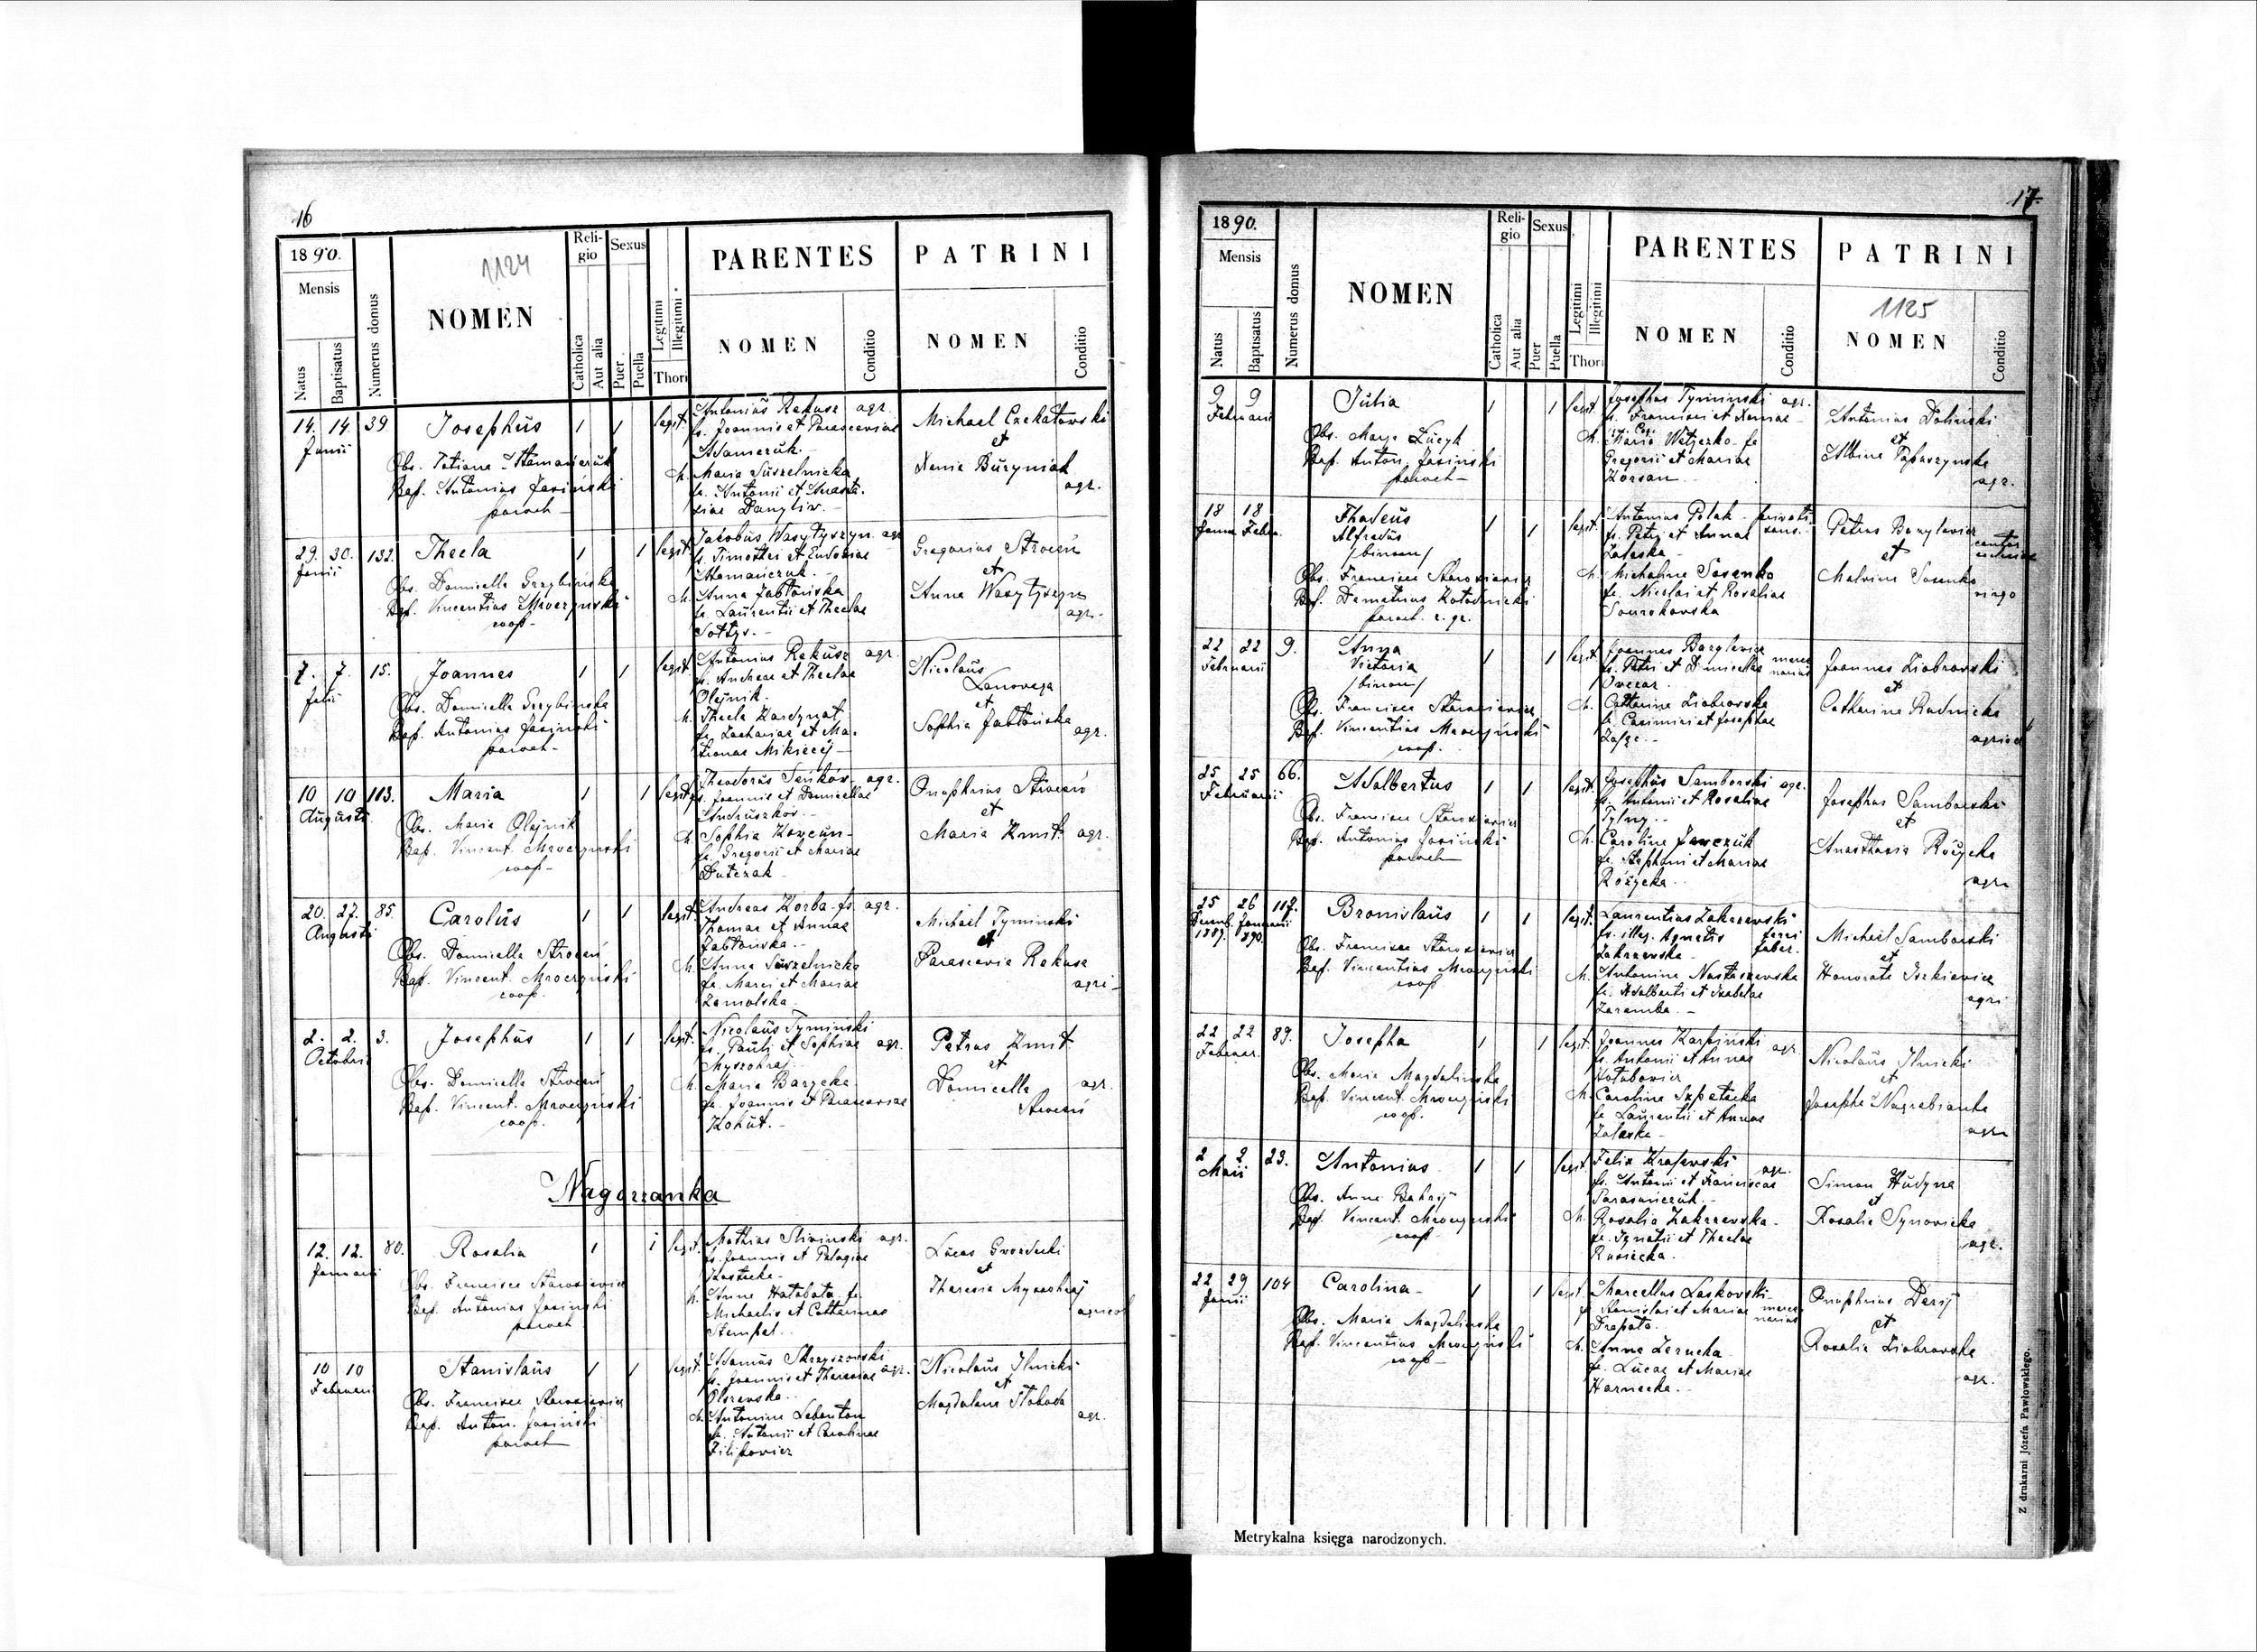 16
1890.
Mensis
Natus
Baptisatus
Numerus domus
1124
NOMEN
Reli-
gio
Catholica
Aut alia
Sexus
Puer
Puella
Legitimi
Illegitimi
Thori
PARENTES
NOMEN
Conditio
PATRINI
NOMEN
Conditio
14. 14 39
Junii
Josephus
Obs. Tatiana
Bap. Antonius Jasiński
paroch
legit.
Antonius Rekusz agr.
fs. Joannis et Parasceviae
Adamczuk.
M. Maria Suszelnicka
fa. Antonii et Anasta-
siae
Michael Czekałowski
et
Xenia Buryniak
agr.
29. 30. 132.
Junii
Thecla
Obs. Domicella Grzybińska
Bap. Vincentius Mroczyński
coop.
legit.
Jacobus Wasyłyszyn agr.
fs. Timothei et Eudoxiae
M. Anna Jabłońska
fa. Laurentii et Theclae
Sołtys.
Gregorius Stroceń
et
Anna Wasyłyszyn
agr.
7. 7. 15.
Julii
Joannes
Obs. Domicella Grzybińska
Bap. Antonius Jasiński
paroch
legit.
Antonius Rekusz agr.
fs. Andreae et Theclae
Olejnik.
M. Thecla Kardynał
fa. Zachariae et Ma-
tronae
Nicolaus
et
Sophia Jabłońska
agr.
10 10 113.
Augusti
Maria
Obs. Maria Olejnik
Bap. Vincent. Mroczyński
coop.
legit.
Theodorus Seńków agr.
fs. Joannis et Domicellae
Andruszków.
M. Sophia
fa. Gregorii et Mariae
Dutczak
Onuphrius Stroceń
et
Maria Kmit agr.
20. 27. 85.
Augusti
Carolus
Obs. Domicella Stroceń
Bap. Vincent. Mroczyński
coop.
legit.
Andreas Korba fs. agr.
Thomae et Annae
Jabłońska.
M. Anna Suszelnicka
fa. Marci et Mariae
Zamolska
Michael Tymiński
et
Parascevia Rekusz
agri
2. 2. 3.
Octobris
Josephus
Obs. Domicella Stroceń
Bap. Vincent. Mroczyński
coop.
legit.
Nicolaus Tymiński
fs. Pauli et Sophiae agr.
Myszohraj
M. Maria Barycka
fa. Joannis et Parasceviae
Kohut.
Petrus Kmit
et
Domicella agr.
Stroceń
Nagórzanka
12. 12. 80.
Januarii
Rosalia
Obs. Francisca Starosiewicz
Bap. Antonius Jasiński
paroch
legit.
Mathias Śliwiński agr.
fs. Joannis et Pelagiae
M. Anna Hałabała fa.
Michaelis et Catharinae
Stempel.
Lucas Gwozdecki
et
Theresia Myszohraj
agricol
10 10
Februarii
Stanislaus
Obs. Francisca Starosiewicz
Bap. Anton. Jasiński
paroch
legit.
Adamus Skrzyszowski
fs. Joannis et Theresiae agr.
Olszewska.
M. Antonina Lebenton
fa. Antonii et Carolinae
Filipowicz
Nicolaus Ilnicki
et
Magdalena Słoboda
agr.
17.
1890.
Mensis
Natus
Baptisatus
Numerus domus
NOMEN
Reli-
gio
Catholica
Aut alia
Sexus
Puer
Puella
Legitimi
Illegitimi
Thori
PARENTES
NOMEN
Conditio
PATRINI
1125
NOMEN
Conditio
9 9
Februarii
Julia
Obs. Marya
Bap. Anton. Jasiński
paroch
legit.
Josephus Tymiński agr.
fs. Francisci et Xeniae
M. Maria
Gregorii et Mariae
Korsan
Antonius Doliński
et
Albina
agr.
18 18
Thadeus
Alfredus
/binom/
Obs. Francisca Starosiewicz
Bap. Demetrius Kołodnicki
paroch. r. gr.
legit.
Antonius Polak
fs. Petri et Annae
Zaleska
M. Michalina Sosenko
fa. Nicolai et Rosaliae
Petrus Barylewicz
cantor
et
Malvina Sosenko
virgo
22 22 9.
Februarii
Anna
Victoria
/binom/
Obs. Francisca Starosiewicz
Bap. Vincentius Mroczyński
coop.
legit.
Joannes Barylewicz
fs. Petri et Domicellae merce-
narius
Owczar.
M. Catharina Ziobrowska
fa. Casimiri et Josephae
Joannes Ziobrowski
et
Catharina Rudnicka
25 25 66.
Februarii
Adalbertus
Obs. Francisca Starosiewicz
Bap. Antonius Jasiński
paroch
legit.
Josephus Samborski agr.
fs. Antonii et Rosaliae
Tylny.
M. Carolina Jawczuk
fa. Stephani et Mariae
Różycka.
Josephus Samborski
et
Anasthasia Różycka
agr.
25 26 117.
Decemb. Januarii
1889. 1890.
Bronislaus
Obs. Francisca Starosiewicz
Bap. Vincentius Mroczyński
coop
legit.
Laurentius Zakrzewski
fs. illeg. Agnetis ferri
Zakrzewska faber.
M. Antonina Nastaszewska
fa. Adalberti et Isabelae
Zaremba.
Michael Samborski
et
Honorata Iszkiewicz
agri
22 22 89.
Februar.
Josepha
Obs. Maria Magdalińska
Bap. Vincent. Mroczyński
coop.
legit.
Joannes Karpiński agr.
fs. Antonii et Annae
M. Carolina Szpetecka
fa. Laurentii et Annae
Zaleska
Nicolaus Ilnicki
et
Josepha
agr.
2 2 23.
Maii
Antonius
Obs. Anna Bahrij
Bap. Vincent. Mroczyński
coop.
legit.
Felix Krajewski agr.
fs. Antonii et Franciscae
M. Rosalia Zakrzewska
fa. Ignatii et Theclae
Rusiecka.
Simon Hudyna
et
Rosalia Synowicka
agr.
22 29 104
Junii
Carolina
Obs. Maria Magdalińska
Bap. Vincentius Mroczyński
coop
legit.
Marcellus Laskowski
fs. Stanislai et Mariae merce-
narius
Drapała.
M. Anna
fa. Lucae et Mariae
Harnecka.
Onuphrius Derij
et
Rosalia Ziobrowska
agr.
Metrykalna księga narodzonych.
Z drukarni Józefa Pawłowskiego.